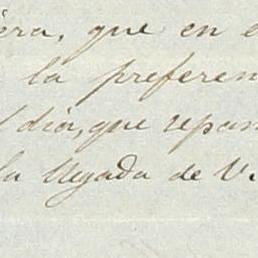 era, que en e
la preferen
dia, que repar
la llegada de V.